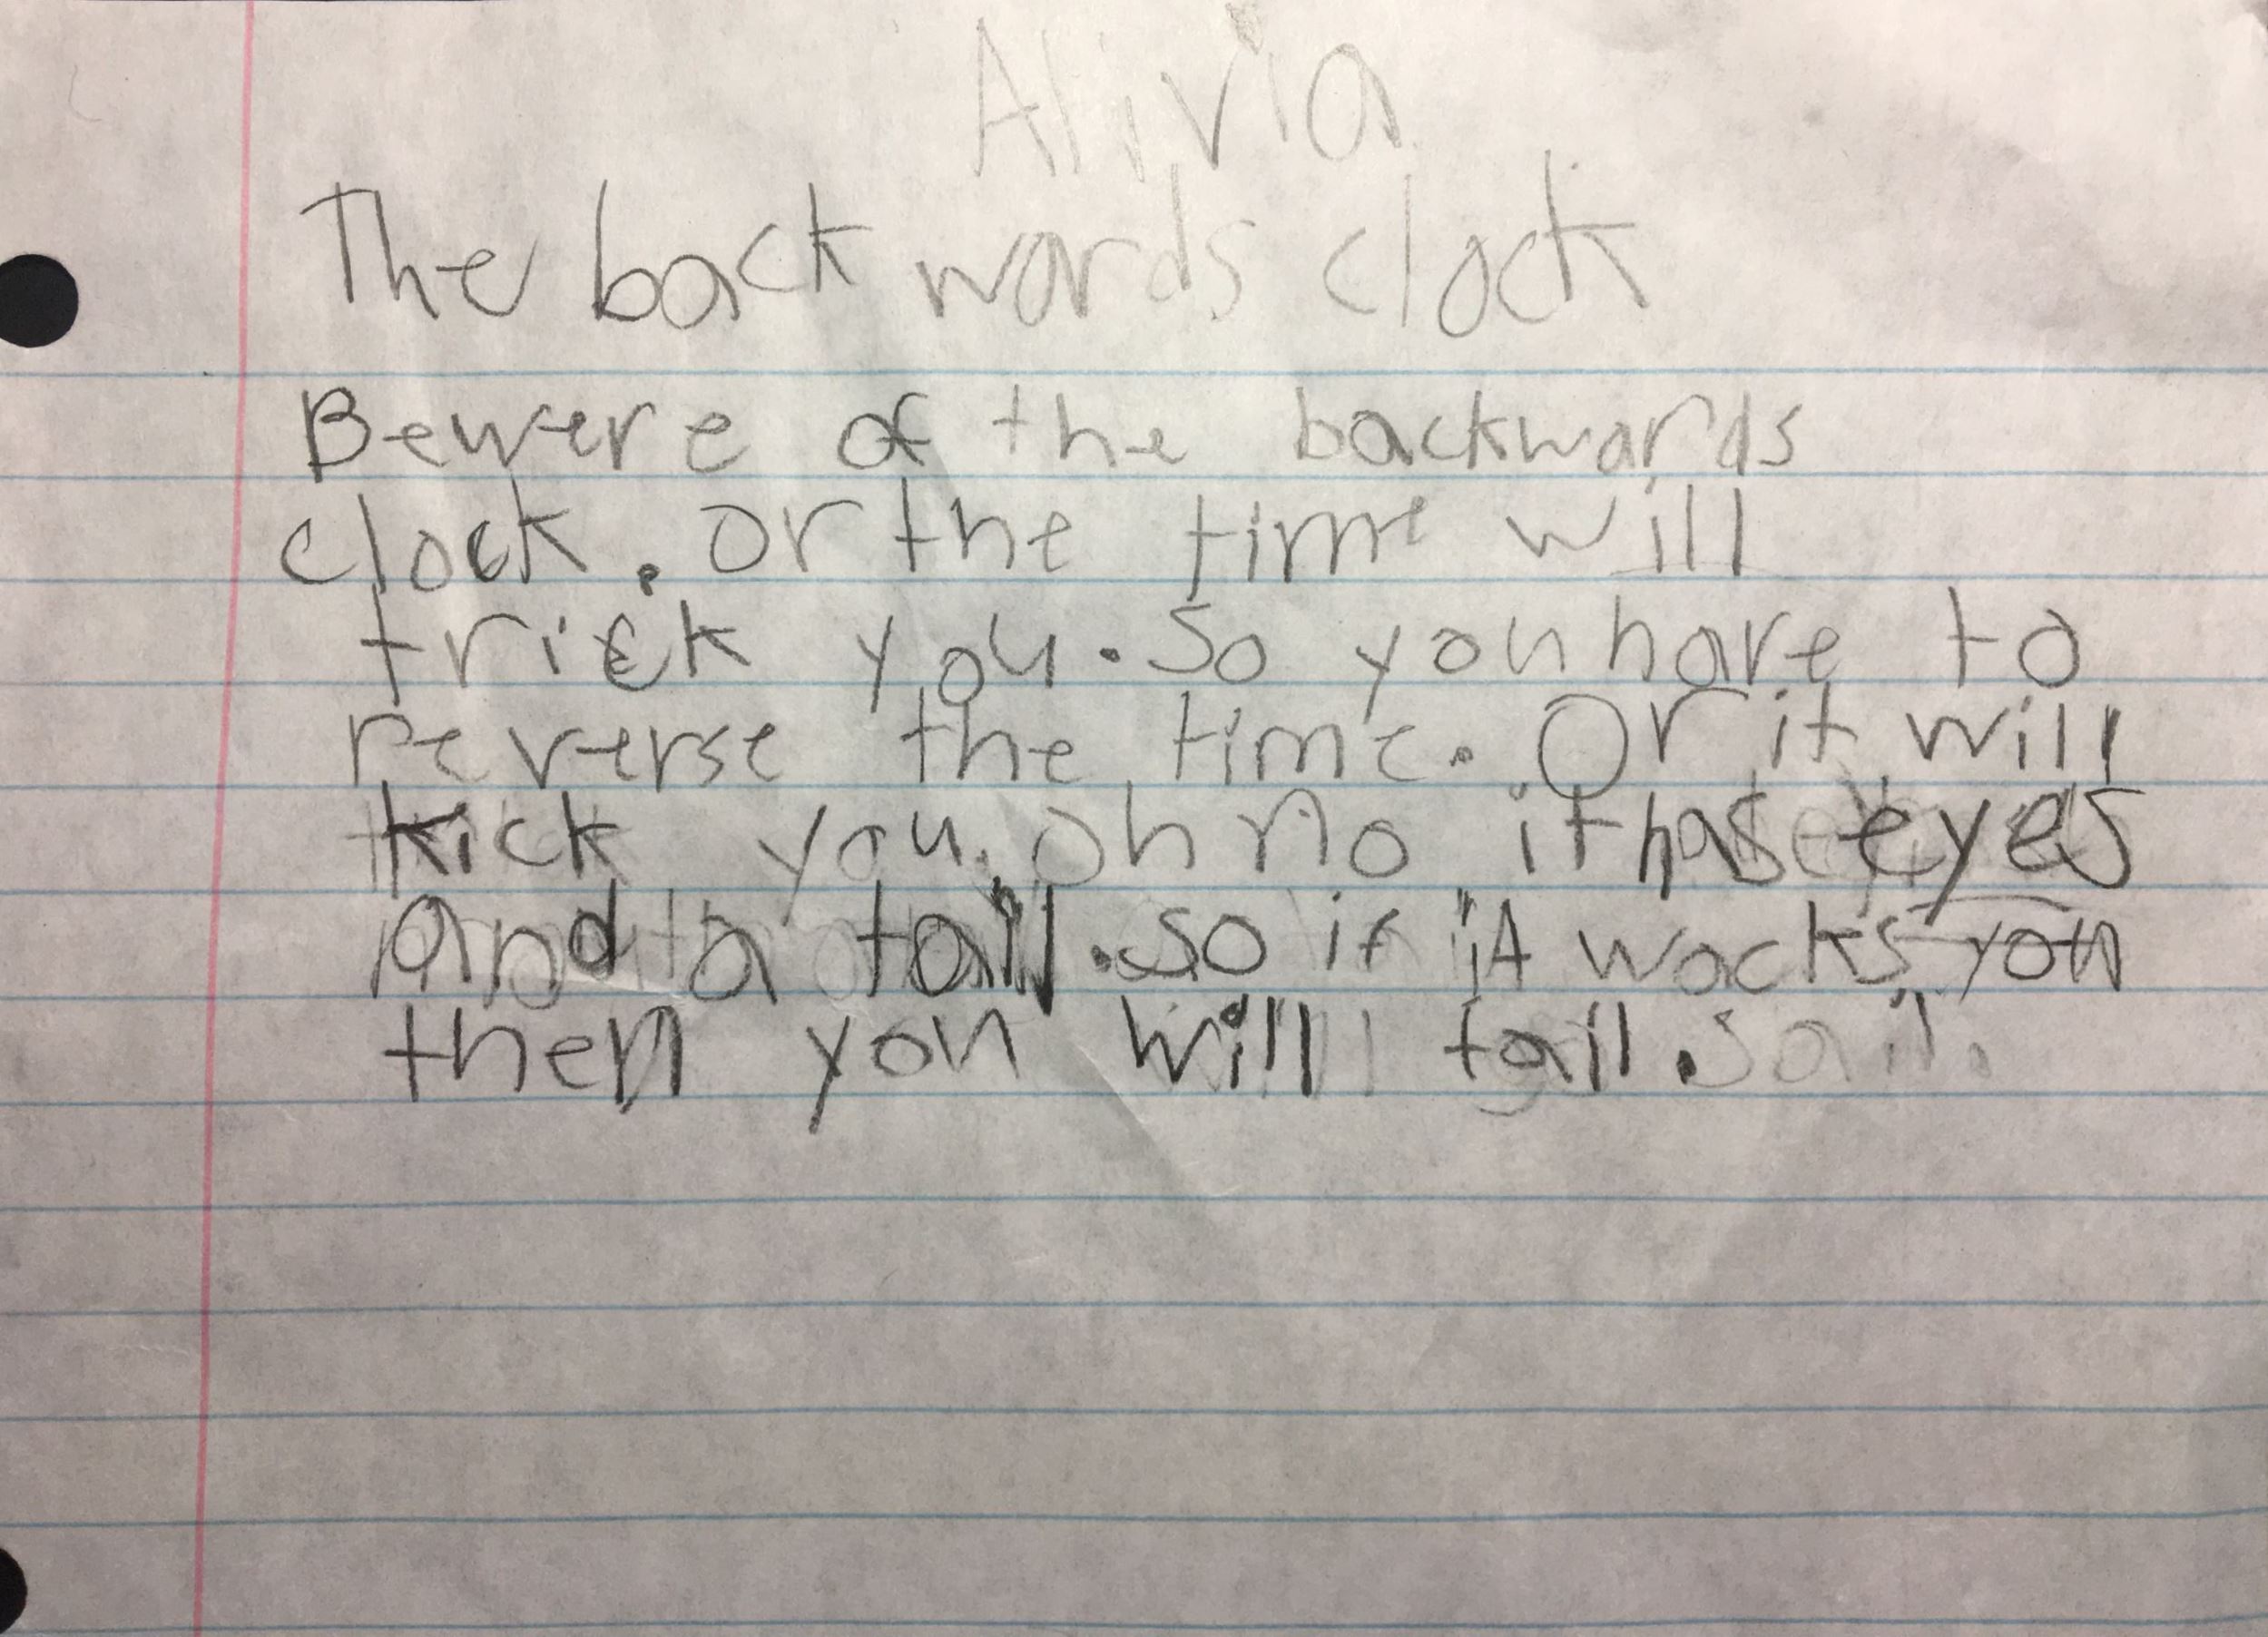 Alivia
The back words clock
Bewere of the backwards
clock. or the time will
trick you. So you have to
reverse the time. Or it will
kick you. oh no it has eyes
and a tail. so if it wacks you
then you will fail.